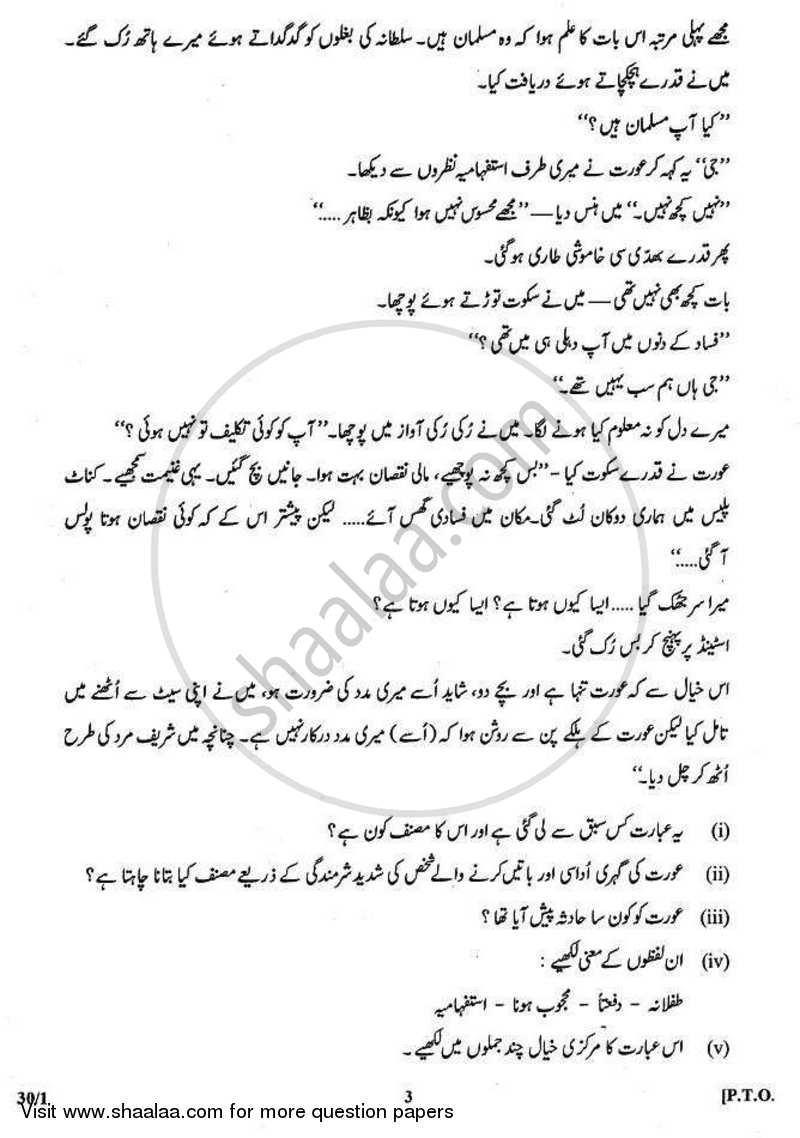 مجھے پہلی مرتبہ اس بات کا علم ہوا کہ وہ مسلمان ہیں۔ سلطانہ کی بغلوں کو گدگداتے ہوئے میرے ہاتھ رُک گئے۔
میں نے قدرے ہچکچاتے ہوئے دریافت کیا۔
”کیا آپ مسلمان ہیں؟“
”جی“ یہ کہہ کر عورت نے میری طرف استفہامیہ نظروں سے دیکھا۔
”نہیں کچھ نہیں۔“ میں ہنس دیا — ”مجھے محسوس نہیں ہوا کیونکہ بظاہر .....“
پھر قدرے بھدّی سی خاموشی طاری ہوگئی۔
بات کچھ بھی نہیں تھی — میں نے سکوت توڑتے ہوئے پوچھا۔
”فساد کے دنوں میں آپ دہلی ہی میں تھی؟“
”جی ہاں ہم سب یہیں تھے۔“
میرے دل کو نہ معلوم کیا ہونے لگا۔ میں نے رُکی رُکی آواز میں پوچھا۔ ”آپ کو کوئی تکلیف تو نہیں ہوئی؟“
عورت نے قدرے سکوت کیا - ”بس کچھ نہ پوچھیے، مالی نقصان بہت ہوا۔ جانیں بچ گئیں۔ یہی غنیمت سمجھیے۔ کناٹ
پلیس میں ہماری دوکان لُٹ گئی۔ مکان میں فسادی گھس آئے..... لیکن پیشتر اس کے کہ کوئی نقصان ہوتا پولس
آگئی.....“
میرا سر جھک گیا ..... ایسا کیوں ہوتا ہے؟ ایسا کیوں ہوتا ہے؟
اسٹینڈ پر پہنچ کر بس رُک گئی۔
اس خیال سے کہ عورت تنہا ہے اور بچے دو، شاید اُسے میری مدد کی ضرورت ہو، میں نے اپنی سیٹ سے اُٹھنے میں
تامل کیا لیکن عورت کے ہلکے پن سے روشن ہوا کہ (اُسے) میری مدد درکار نہیں ہے۔ چنانچہ میں شریف مرد کی طرح
اُٹھ کر چل دیا۔“
(i) یہ عبارت کس سبق سے لی گئی ہے اور اس کا مصنف کون ہے؟
(ii) عورت کی گہری اُداسی اور باتیں کرنے والے شخص کی شدید شرمندگی کے ذریعے مصنف کیا بتانا چاہتا ہے؟
(iii) عورت کو کون سا حادثہ پیش آیا تھا؟
(iv) ان لفظوں کے معنی لکھیے :
طفلانہ - دفعتاً - محجوب ہونا - استفہامیہ
(v) اس عبارت کا مرکزی خیال چند جملوں میں لکھیے۔
30/1 3 [P.T.O.
Visit www.shaalaa.com for more question papers
shaalaa.com